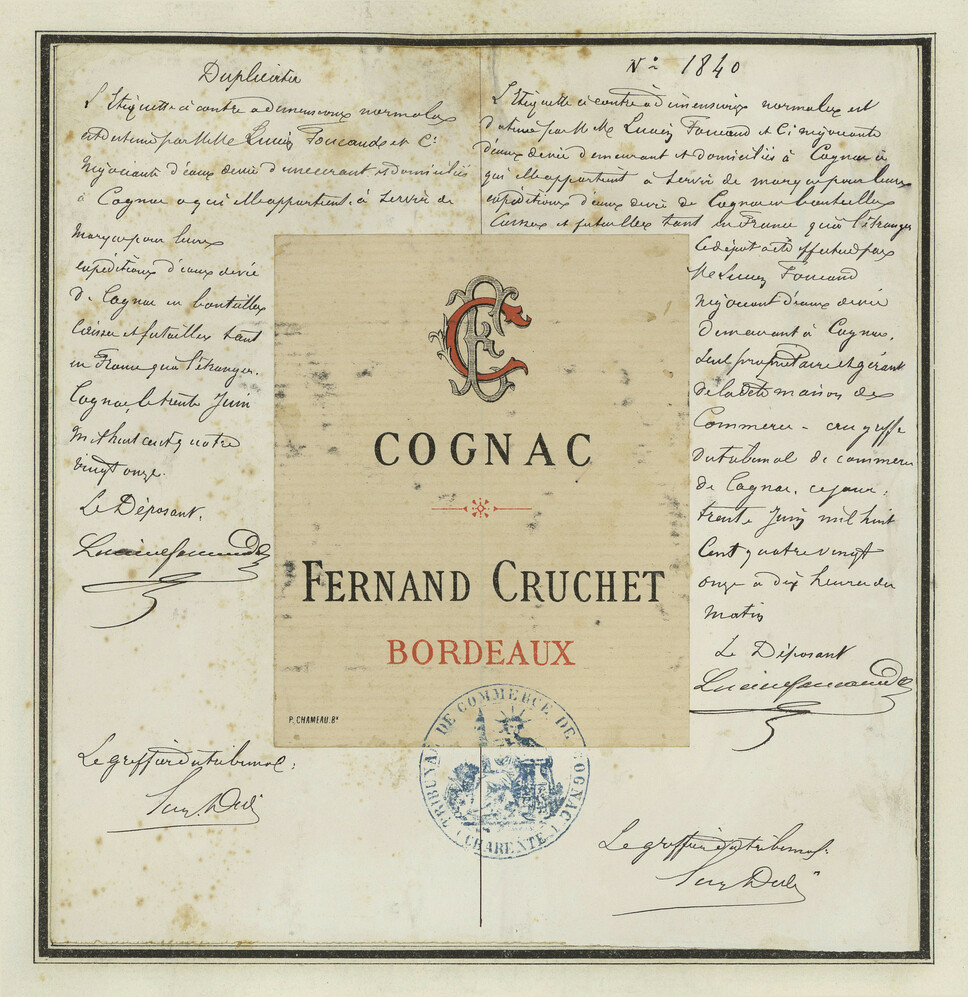 Duplicata
L'Etiquette ci contre a dimensions normales
est destiné par MM. Lucien Foucauds et Cie
Négociants d'eaux devie demeurant et domiciliés
à Cognac a qui elle appartient à servir de
marque pour leurs
expéditions d'eaux devie
de Cognac en bouteilles
Caisses et futailles tant
en France qu'à l'étranger.
Cognac, le trente Juin
mil huit cent quatre
vingt onze.
Le Déposant,
Lucien Foucauds
Le greffier du tribunal:
No 1840
L'Etiquette ci contre à dimensions normales est
destiné par MM. Lucien Foucaud et Ci négociants
d'eaux devie demeurant et domiciliés à Cognac à
qui elle appartient à servir de marque pour leurs
expéditions d'eaux devie de Cognac en bouteilles
Caisses et futailles tant en France qu'à l'étranger
Ce dépot a été effectué par
Mr Lucien Foucaud
négociant d'eaux devie
demeurant à Cognac,
seul propriétaire et gérant
de la dite maison de
Commerce - au greffe
du tribunal de commerce
de Cognac, ce jour:
trente Juin mil huit
Cent quatre vingt
onze à dix heures du
matin
Le Déposant
Lucien Foucauds
Le greffier du tribunal:
FCC
COGNAC
FERNAND CRUCHET
BORDEAUX
P. CHAMEAU. Bx
TRIBUNAL DE COMMERCE DE COGNAC
(CHARENTE)